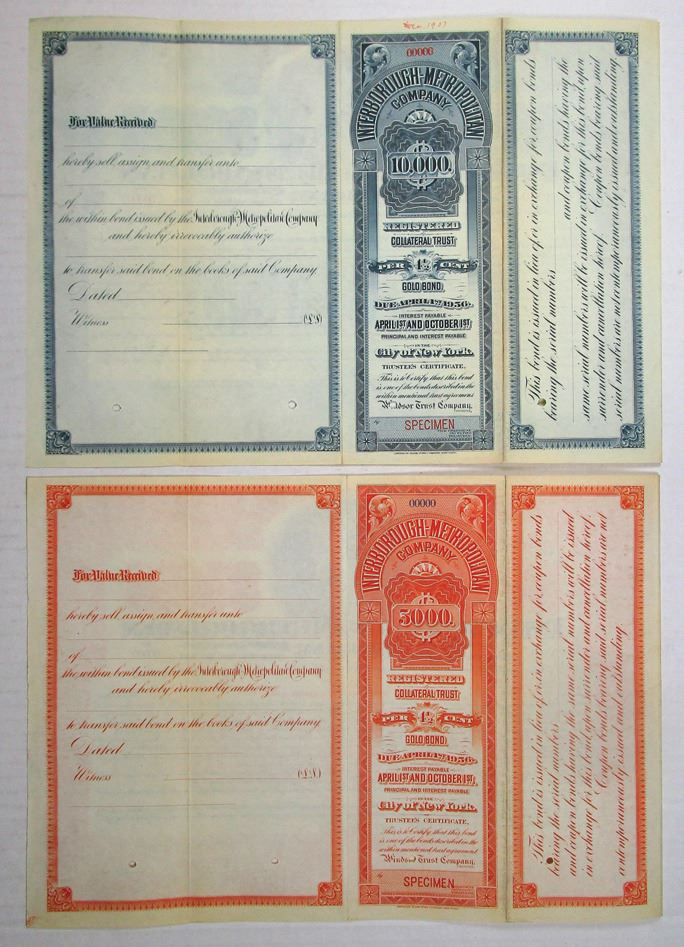 For Value Received
hereby sell, assign, and transfer unto
of
the within bond issued by the Interborough-Metropolitan Company
and hereby irrevocably authorize
to transfer said bond on the books of said Company.
Dated
Witness (L.S.)
1907
00000
INTERBOROUGH-METROPOLITAN
COMPANY
$
10,000.
REGISTERED
COLLATERAL TRUST
PER 4½ CENT
GOLD BOND,
DUE APRIL 1ST 1956.
INTEREST PAYABLE
APRIL 1ST AND OCTOBER 1ST
PRINCIPAL AND INTEREST PAYABLE
IN THE
City of New York.
TRUSTEE'S CERTIFICATE.
This is to Certify that this bond
is one of the bonds described in the
within mentioned trust agreement
Windsor Trust Company,
By
SPECIMEN
This bond is issued in lieu of or in exchange for coupon bonds
bearing the serial numbers
and coupon bonds having the
same serial numbers will be issued in exchange for this bond, upon
surrender and cancellation hereof. Coupon bonds bearing said
serial numbers are not contemporaneously issued and outstanding.
For Value Received
hereby sell, assign, and transfer unto
of
the within bond issued by the Interborough-Metropolitan Company
and hereby irrevocably authorize
to transfer said bond on the books of said Company.
Dated
Witness (L.S.)
00000
INTERBOROUGH-METROPOLITAN
COMPANY
$
5000.
REGISTERED
COLLATERAL TRUST
PER 4½ CENT
GOLD BOND,
DUE APRIL 1ST 1956.
INTEREST PAYABLE
APRIL 1ST AND OCTOBER 1ST,
PRINCIPAL AND INTEREST PAYABLE
IN THE
City of New York.
TRUSTEE'S CERTIFICATE.
This is to Certify that this bond
is one of the bonds described in the
within mentioned trust agreement
Windsor Trust Company,
By
SPECIMEN
This bond is issued in lieu of or in exchange for coupon bonds
bearing the serial numbers
and coupon bonds having the same serial numbers will be issued
in exchange for this bond, upon surrender and cancellation hereof.
Coupon bonds bearing said serial numbers are not
contemporaneously issued and outstanding.